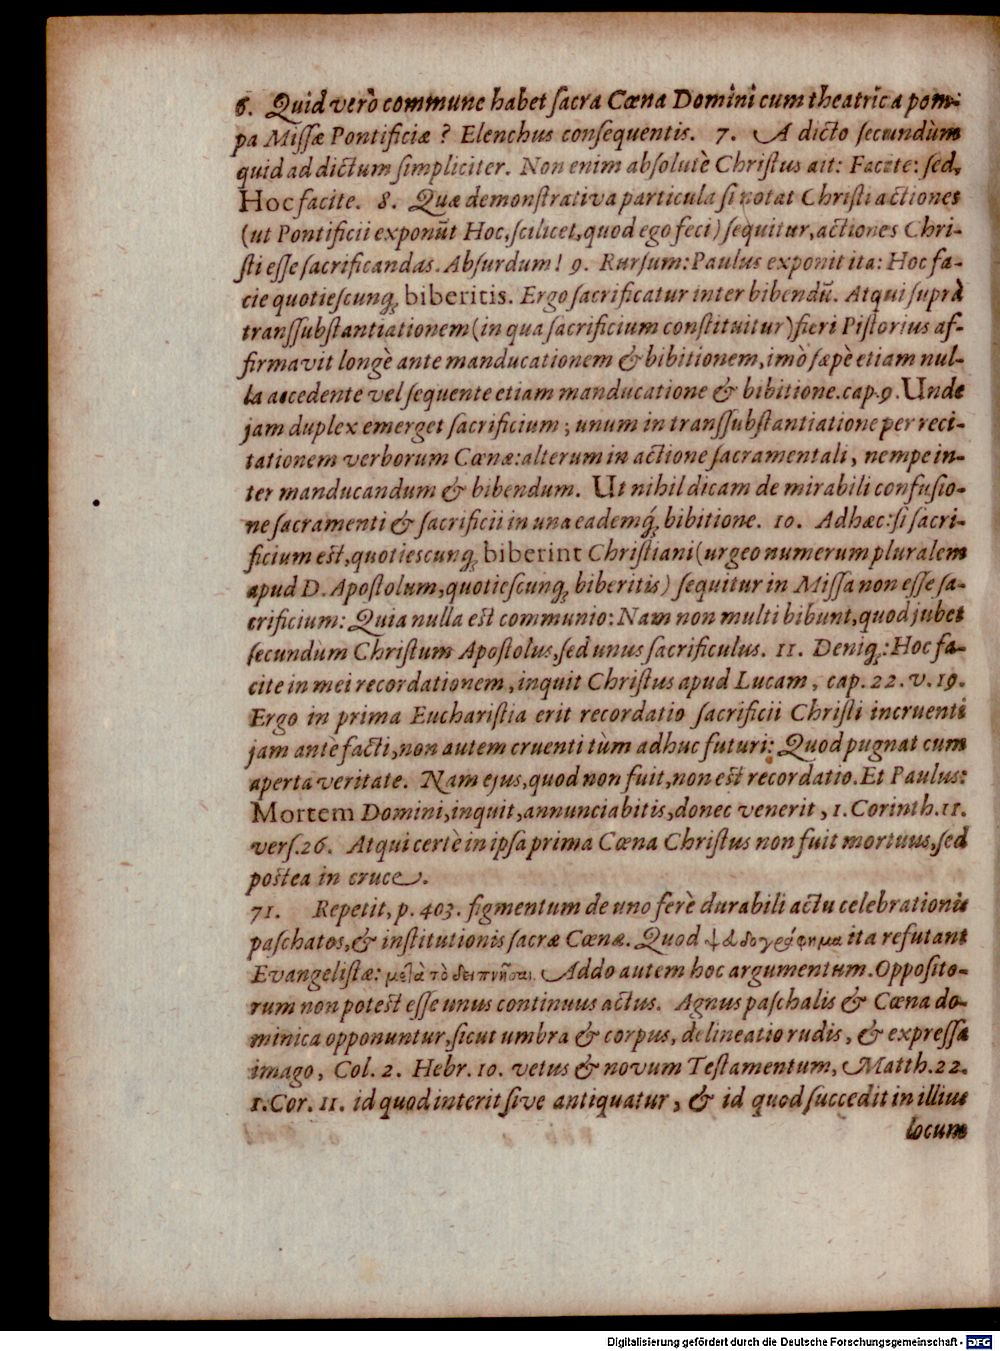 6. Quid verò commune habet ſacra Cœna Domini cum theatrica pom-
pa Miſſæ Pontificiæ? Elenchus conſequentis. 7. A dicto ſecundùm
quid ad dictum ſimpliciter. Non enim abſolutè Chriſtus ait: Facite: ſed,
Hoc facite. 8. Quæ demonſtrativa particula ſi notat Chriſti actiones
(ut Pontificii exponūt Hoc, ſcilicet, quod ego feci) ſequitur, actiones Chri-
ſti eſſe ſacrificandas. Abſurdum! 9. Rurſum: Paulus exponit ita: Hoc fa-
cie quotieſcunq; biberitis. Ergo ſacrificatur inter bibendū. Atqui ſuprà
tranſſubſtantiationem (in qua ſacrificium conſtituitur) fieri Piſtorius af-
firmavit longè ante manducationem & bibitionem, imò ſæpè etiam nul-
la accedente vel ſequente etiam manducatione & bibitione. cap. 9. Unde
jam duplex emerget ſacrificium; unum in tranſſubſtantiatione per reci-
tationem verborum Cœnæ: alterum in actione ſacramentali, nempe in-
ter manducandum & bibendum. Ut nihil dicam de mirabili confuſio-
ne ſacramenti & ſacrificii in una eademq́; bibitione. 10. Adhæc: ſi ſacri-
ficium eſt, quotiescunq; biberint Chriſtiani (urgeo numerum pluralem
apud D. Apoſtolum, quotieſcunq; biberitis) ſequitur in Miſſa non eſſe ſa-
crificium: Quia nulla eſt communio: Nam non multi bibunt, quod jubet
ſecundùm Chriſtum Apoſtolus, ſed unus ſacrificulus. 11. Deniq;: Hoc fa-
cite in mei recordationem, inquit Chriſtus apud Lucam, cap. 22. v. 19.
Ergo in prima Euchariſtia erit recordatio ſacrificii Chriſti incruenti
jam antè facti, non autem cruenti tùm adhuc futuri: Quod pugnat cum
aperta veritate. Nam ejus, quod non fuit, non eſt recordatio. Et Paulus:
Mortem Domini, inquit, annunciabitis, donec venerit, 1. Corinth. 11.
verſ. 26. Atqui certè in ipſa prima Cœna Chriſtus non fuit mortuus, ſed
poſtea in cruce.
71. Repetit, p. 403. figmentum de uno ferè durabili actu celebrationis
paſchatos, & inſtitutionis ſacræ Cœnæ. Quod ψευδογράφημα ita refutant
Evangeliſtæ: μετὰ τὸ δειπνῆσαι. Addo autem hoc argumentum. Oppoſito-
rum non poteſt eſſe unus continuus actus. Agnus paſchalis & Cœna do-
minica opponuntur, ſicut umbra & corpus, delineatio rudis, & expreſſa
imago, Col. 2. Hebr. 10. vetus & novum Teſtamentum, Matth. 22.
1. Cor. 11. id quod interit ſive antiquatur, & id quod ſuccedit in illius
locum
Digitalisierung gefördert durch die Deutsche Forschungsgemeinschaft - DFG